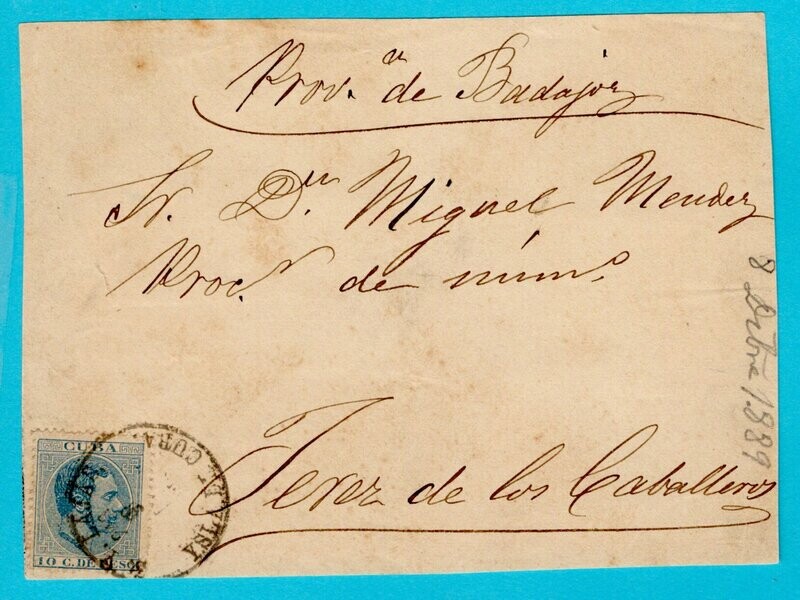 Prov.ª de Badajoz
Sr. Dn. Miguel Mendez
Proc.r de núm.o
Jerez de los Caballeros
8 Octbre 1889
CUBA
10 C. DE PESO
ISLA DE CUBA